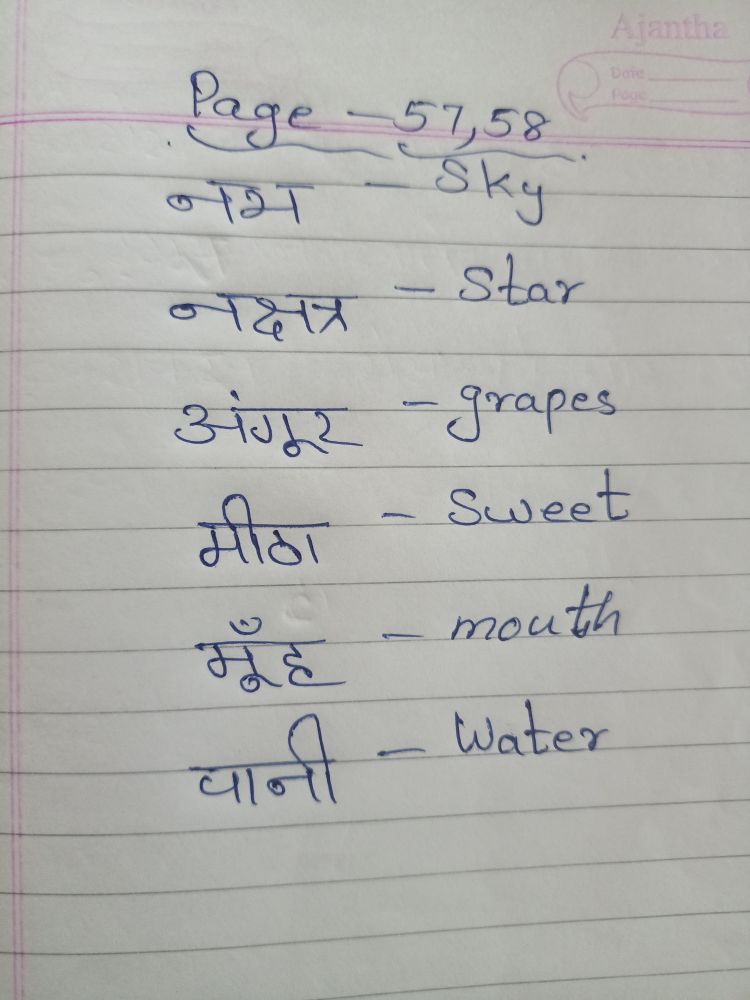 Ajantha
Date
Page
Page - 57, 58
नभ - Sky
नक्षत्र - Star
अंगूर - grapes
मीठा - Sweet
मूँह - mouth
पानी - Water